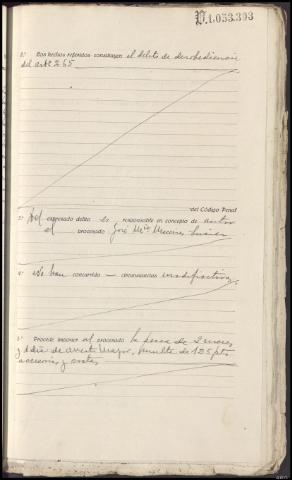 P.1.053.393
2.ª Los hechos referidos constituyen el delito de desobediencia
del artº 265
del Código Penal
3.ª Del expresado delito es responsable en concepto de autor
el procesado José Mª
4.ª No han concurrido circunstancias modificativas
5.ª Procede imponer al procesado la pena de 2 meses
y 1 día de arresto mayor, multa de 125 pts
accesorias y costas